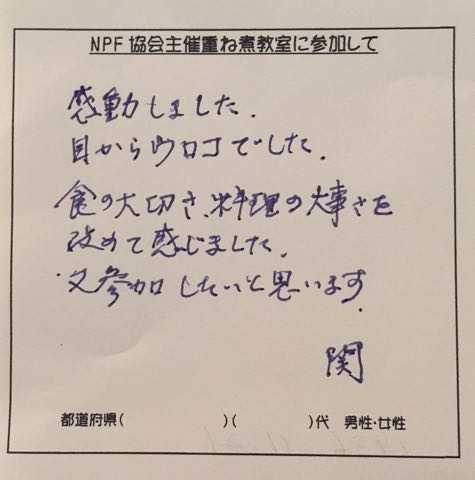 NPF協会主催重ね煮教室に参加して
感動しました.
目からウロコでした.
食の大切さ、料理の大事さを
改めて感じました.
又参加したいと思います.
関
都道府県(　　　　　　　)(　　　　　　)代 男性・女性